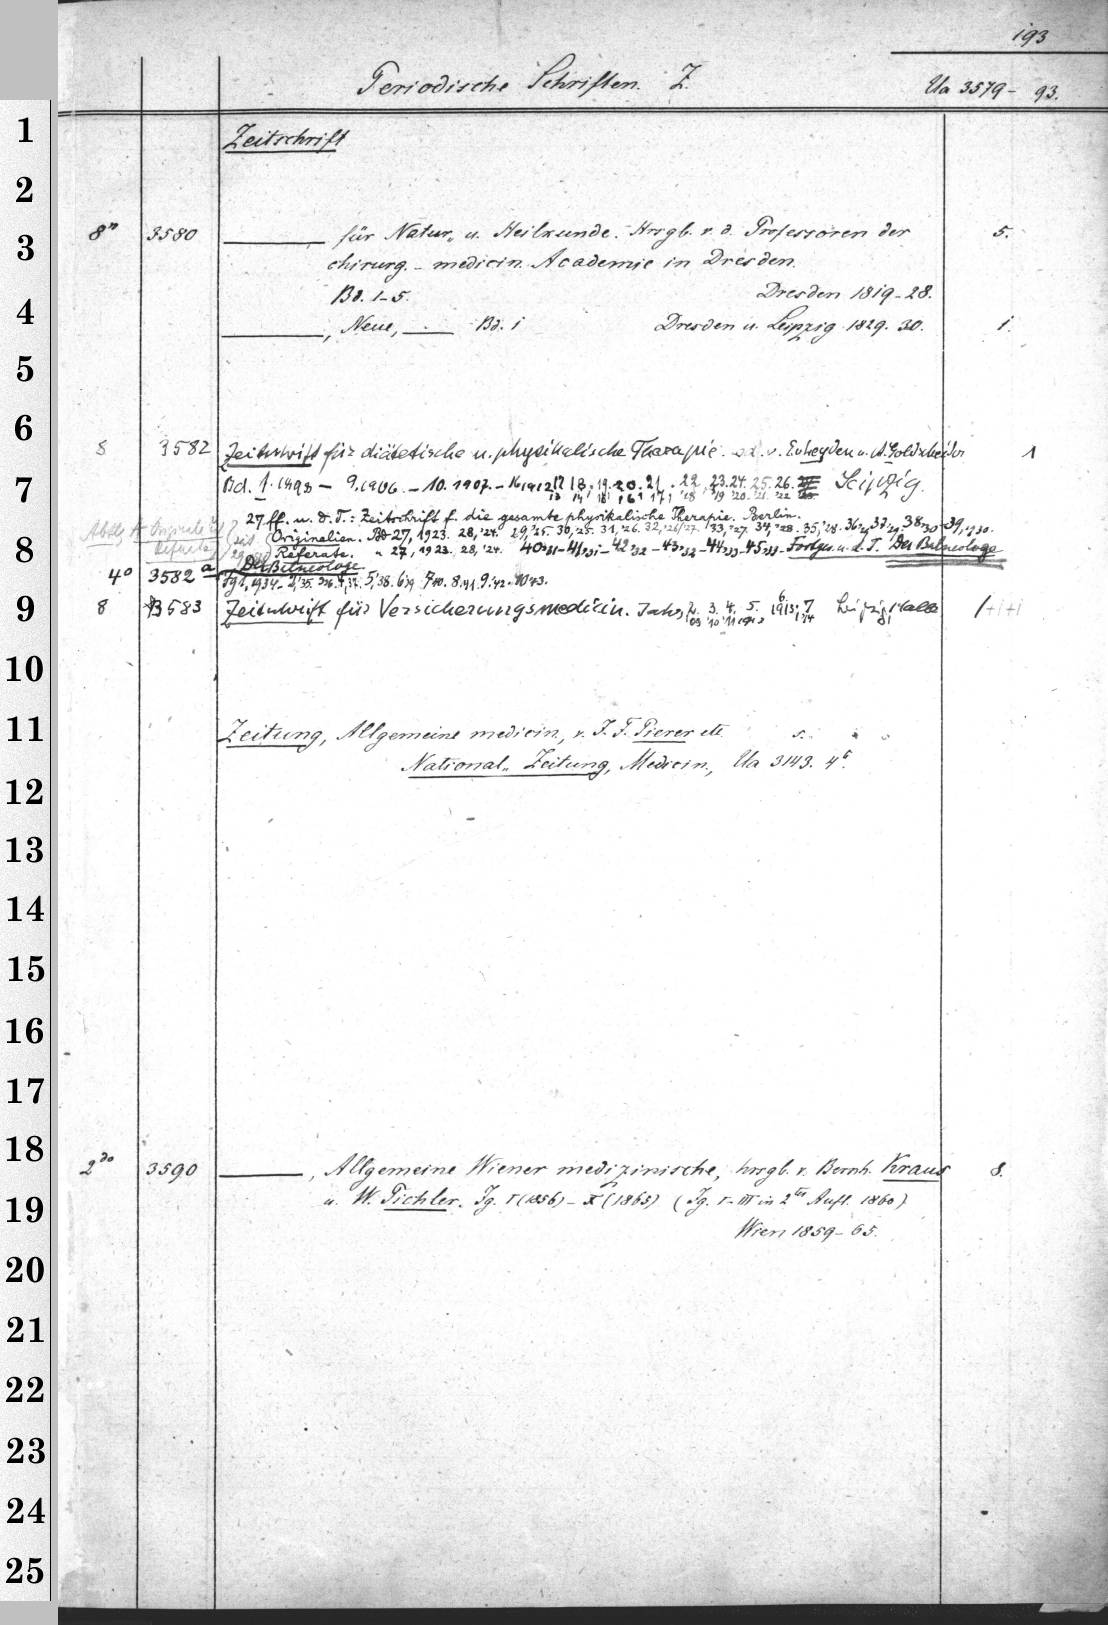 193
Periodische Schriften. Z. Ua 3579-93.
1
Zeitschrift
2
3
8° 3580 ——— für Natur- u. Heilkunde. Hrsgb. v. d. Professoren der 5.
chirurg.-medicin. Academie in Dresden.
4
Bd. 1-5. Dresden 1819-28.
———, Neue, ——— Bd. 1 Dresden u. Leipzig 1829. 30. 1.
5
6
8 3582 Zeitschrift für diätetische u. physikalische Therapie. v. E. v. Leyden u. A. Goldscheider 1
7
Bd. 1. 1898 - 9. 1906. - 10. 1907. - 16 1912 17 18. 19. 20. 21. 22. 23. 24. 25. 26. Leipzig.
27 ff. u. d. T.: Zeitschrift f. die gesamte physikalische Therapie. Berlin.
Originalien. Bd 27, 1923. 28, '24. 29, '25. 30, '25. 31, '26. 32, '26/'27. 33, '27. 34, '28. 35, '28. 36, 37, 38, 39, '30.
8
Referate. " 27, 1923. 28, '24. 40,31-41,31-42,32-43,32-44,33-45,33-Fortges. u. d. T. Der Balneologe
Der Balneologe
4° 3582 a Jg 1, 1934- 2,35. 3,36. 4,37. 5,38. 6,39 7,40. 8,41. 9,42. 10,43.
9
8 3583 Zeitschrift für Versicherungsmedicin. Jahrg. 2. 3. 4. 5. 6. 1913, 7 Leipzig 1+1+1
10
11
Zeitung, Allgemeine medicin., v. J. F. Pierer etc. s.
National-Zeitung, Medicin., Ua 3143. 4°.
12
13
14
15
16
17
18
2° 3590 ———, Allgemeine Wiener medizinische, hrsgb. v. Bernh. Kraus 8.
19
u. W. Pichler. Jg. I (1856) - X (1865) (Jg. I-III in 2ter Aufl. 1860)
Wien 1859-65.
20
21
22
23
24
25